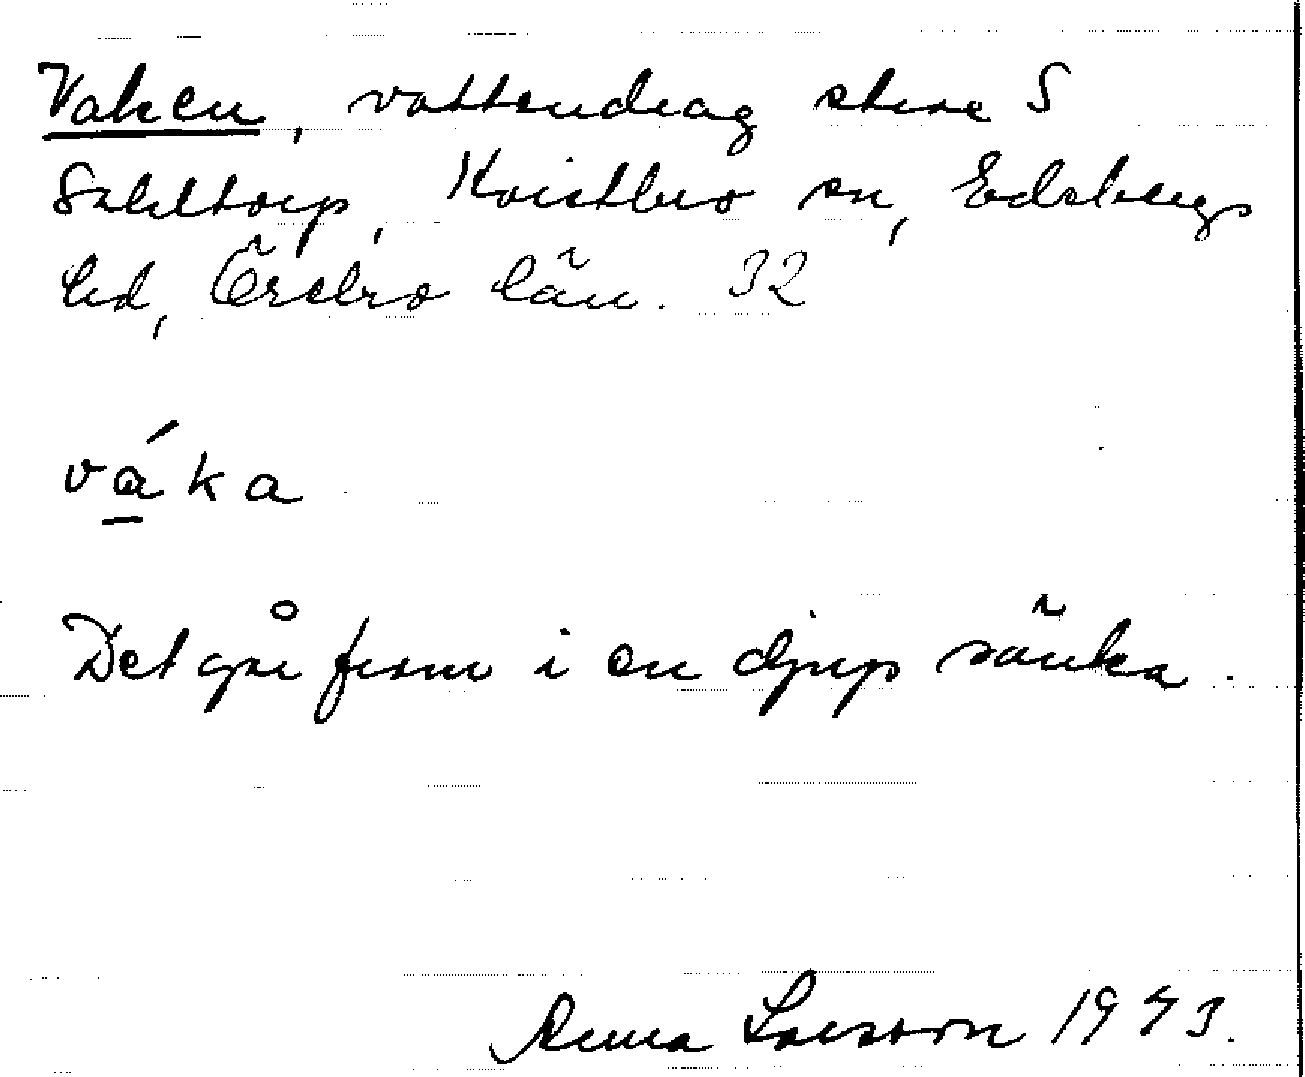 Vaken, vattendrag strax S
Sahltorp, Kvistbro sn, Edsbergs
hd, Örebro län. 32
váka
Det går fram i en djup sänka.
Anna Larsson 1943.